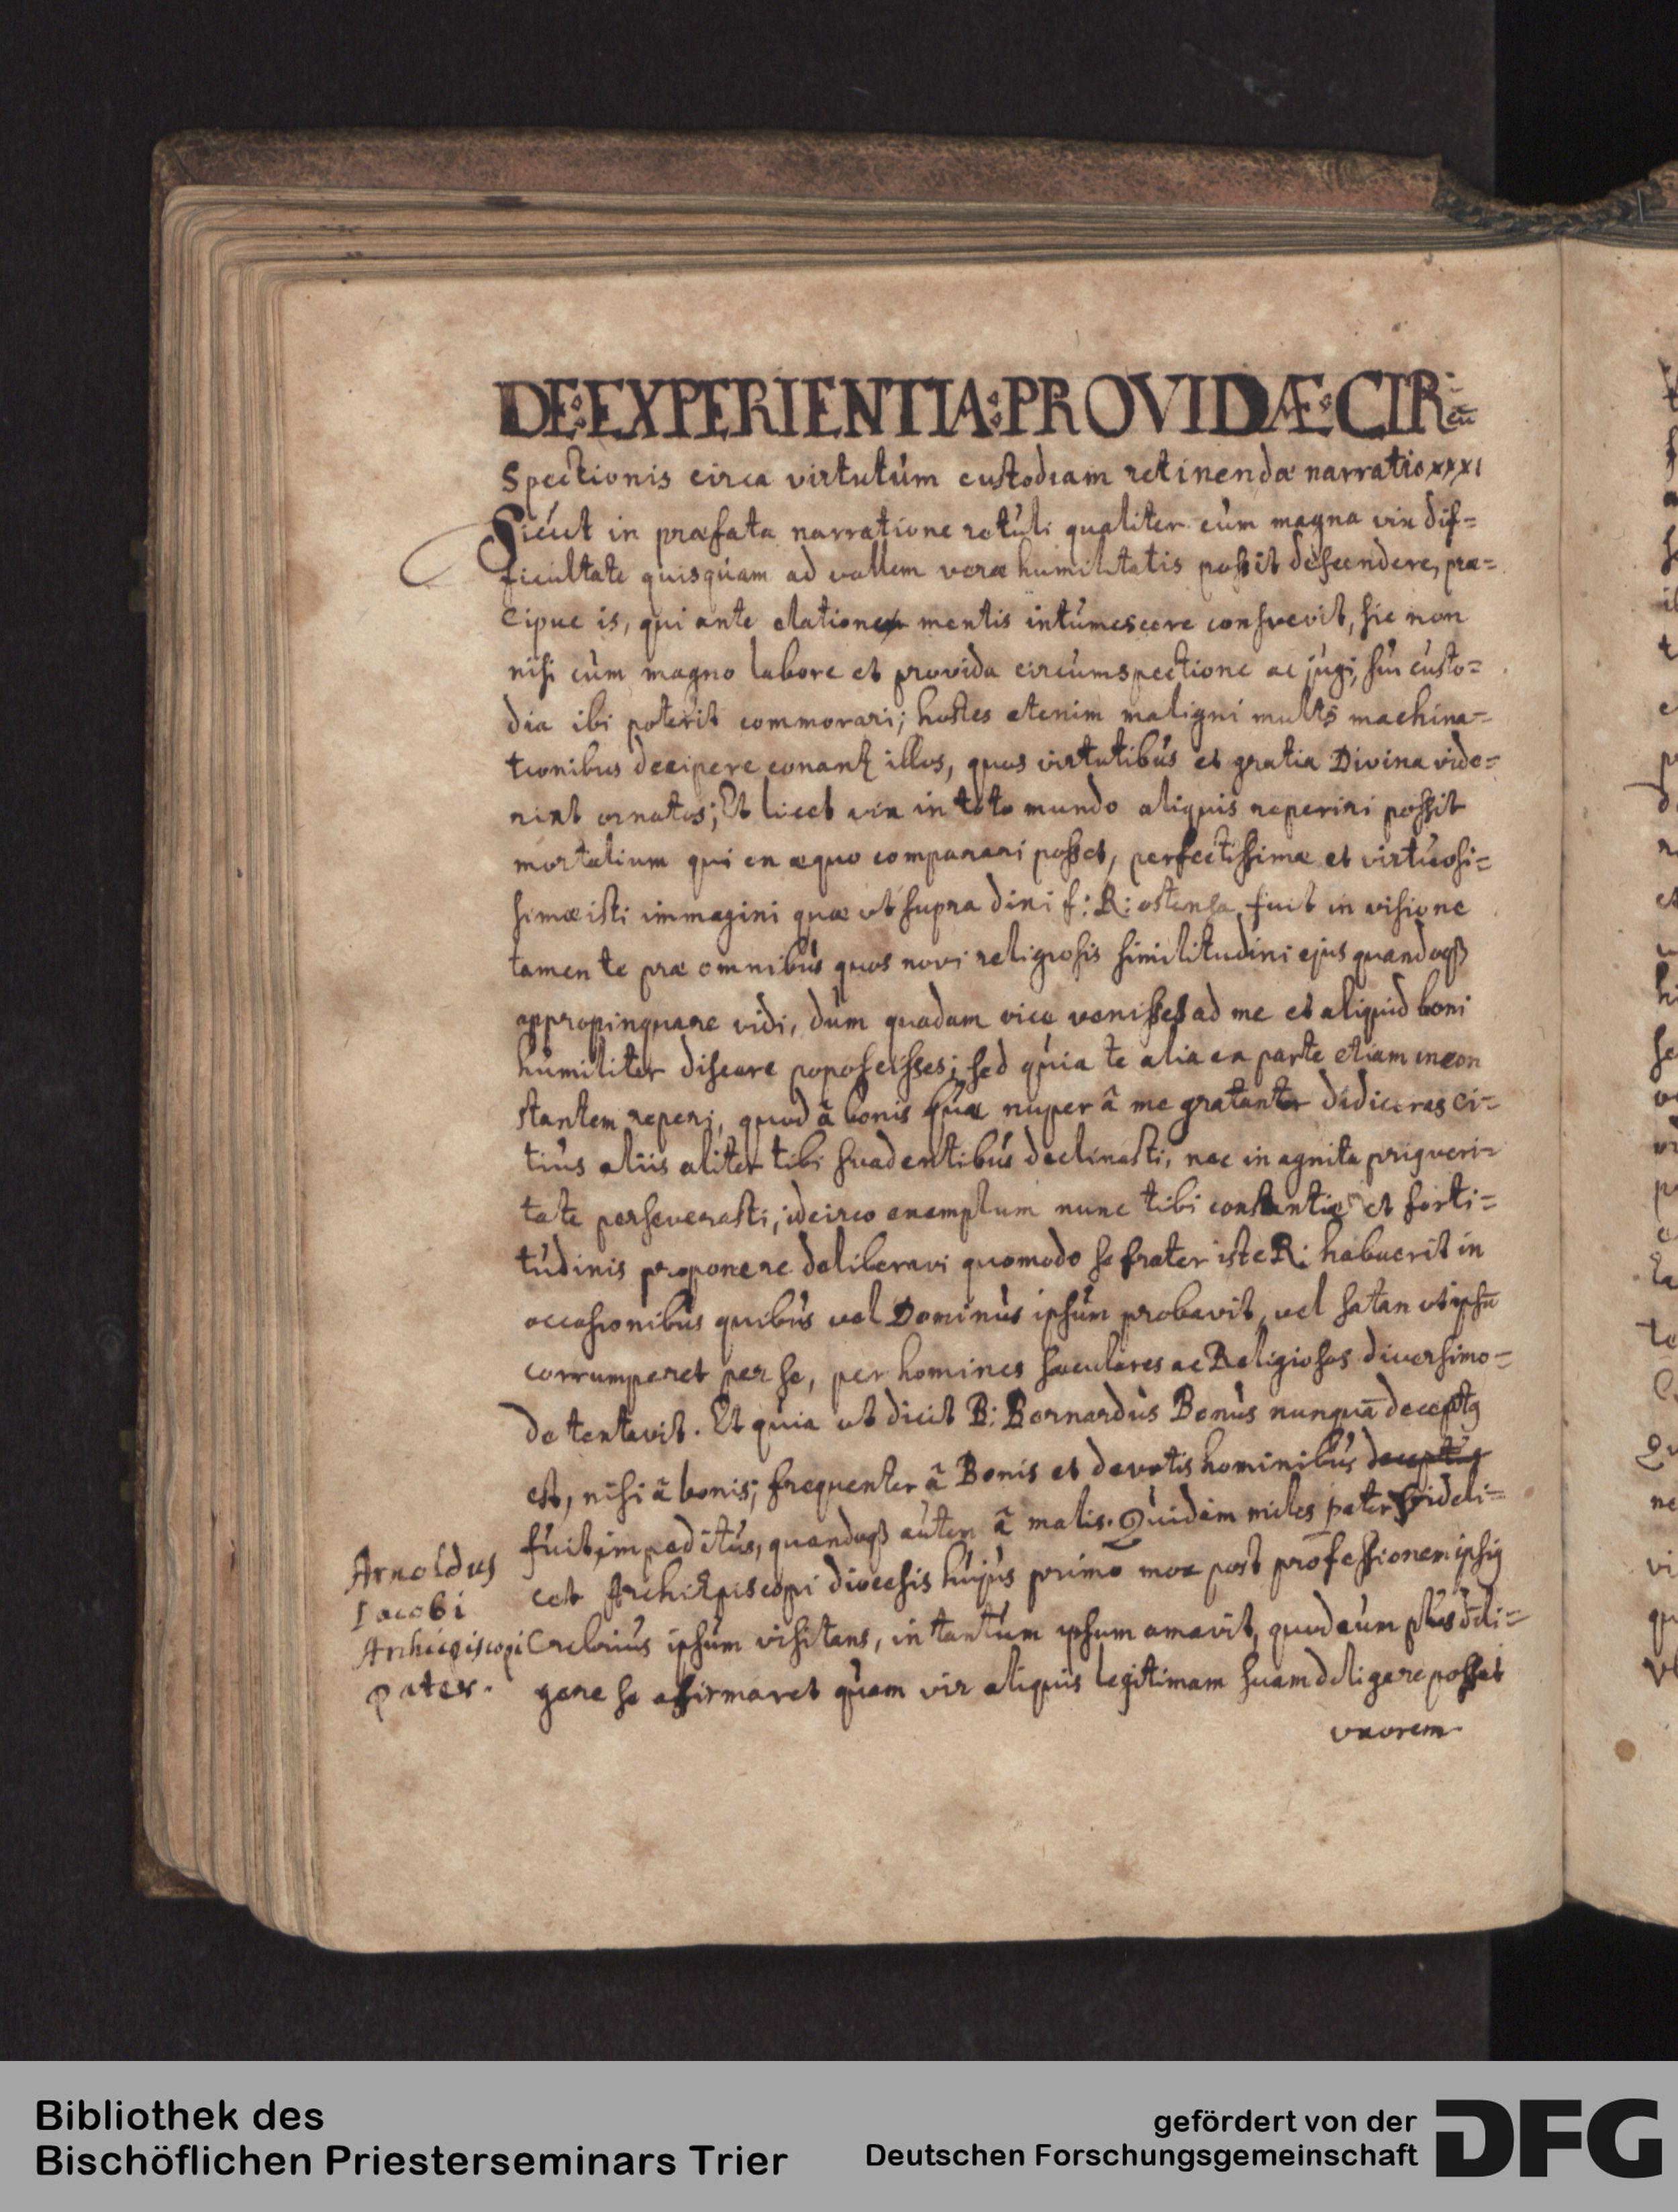 DE:EXPERIENTIA:PROVIDÆ:CIR=
cū
Spectionis circa virtutúm custodiam retinendæ narratio xxxi
Sicút in præfata narratione rotúli qualiter cúm magna vix dif=
ficúltate quisquam ad vallem veræ humilitatis possit descendere, præ=
cipue is, qui ante elatione mentis intúmescere consvevit, sic non
nisi cúm magno labore et provida circúmspectione ac jugi, súi custo=
dia ibi poterit commorari; hostes etenim maligni multis machina=
tionibus decipere conantʒ illos, quos virtutibús et gratia Divina vide=
rint ornatos; Et licet vix in toto mundo aliquis reperiri possit
mortalium qui ex æquo comparari posset, perfectissimæ et virtúosi=
simæ isti immagini quæ út supra dixi f: R: ostensa fuit in visione
tamen te præ omnibús quos novi religiosis similitudini ejus quandoqß
appropinquare vidi, dúm quadam vice venisses ad me et aliquid boni
húmiliter discere poposcisses; sed qúia te alia ex parte etiam incon
stantem reperi, quod â bonis quæ nuper â me gratanter didiceras ci=
tiús aliis aliter tibi suadentibús declinasti, nec in agnita priqveri=
tate perseverasti; idcirco exemplum nunc tibi constantiæ et forti=
túdinis proponere deliberavi quomodo se frater iste R: habuerit in
occasionibús quibús vel Dominús ipsúm probavit, vel satan ut ipsū
corrumperet per se, per homines sæculares ac Religiosos diversimo=
de tentavit. Et quia ut dicit B: Bernardús Bonús nunquā deceptg
est, nisi â bonis; frequenter â Bonis et devotis hominibús deceptg
fuit impeditús, quandoqß aútem â malis. Quidam miles pater videli=
cet ArchiEpiscopi diœcesis hújús primô mox post professionem ipsig
Crebriús ipsúm visitans, in tantúm ipsum amavit, quod eum plús deli=
gere se affirmaret quam vir aliquis legitimam suam deligere posset
uxorem
Arnoldus
Iacobi
Archiepiscopi
pater.
Bibliothek des
Bischöflichen Priesterseminars Trier
gefördert von der
Deutschen Forschungsgemeinschaft
DFG